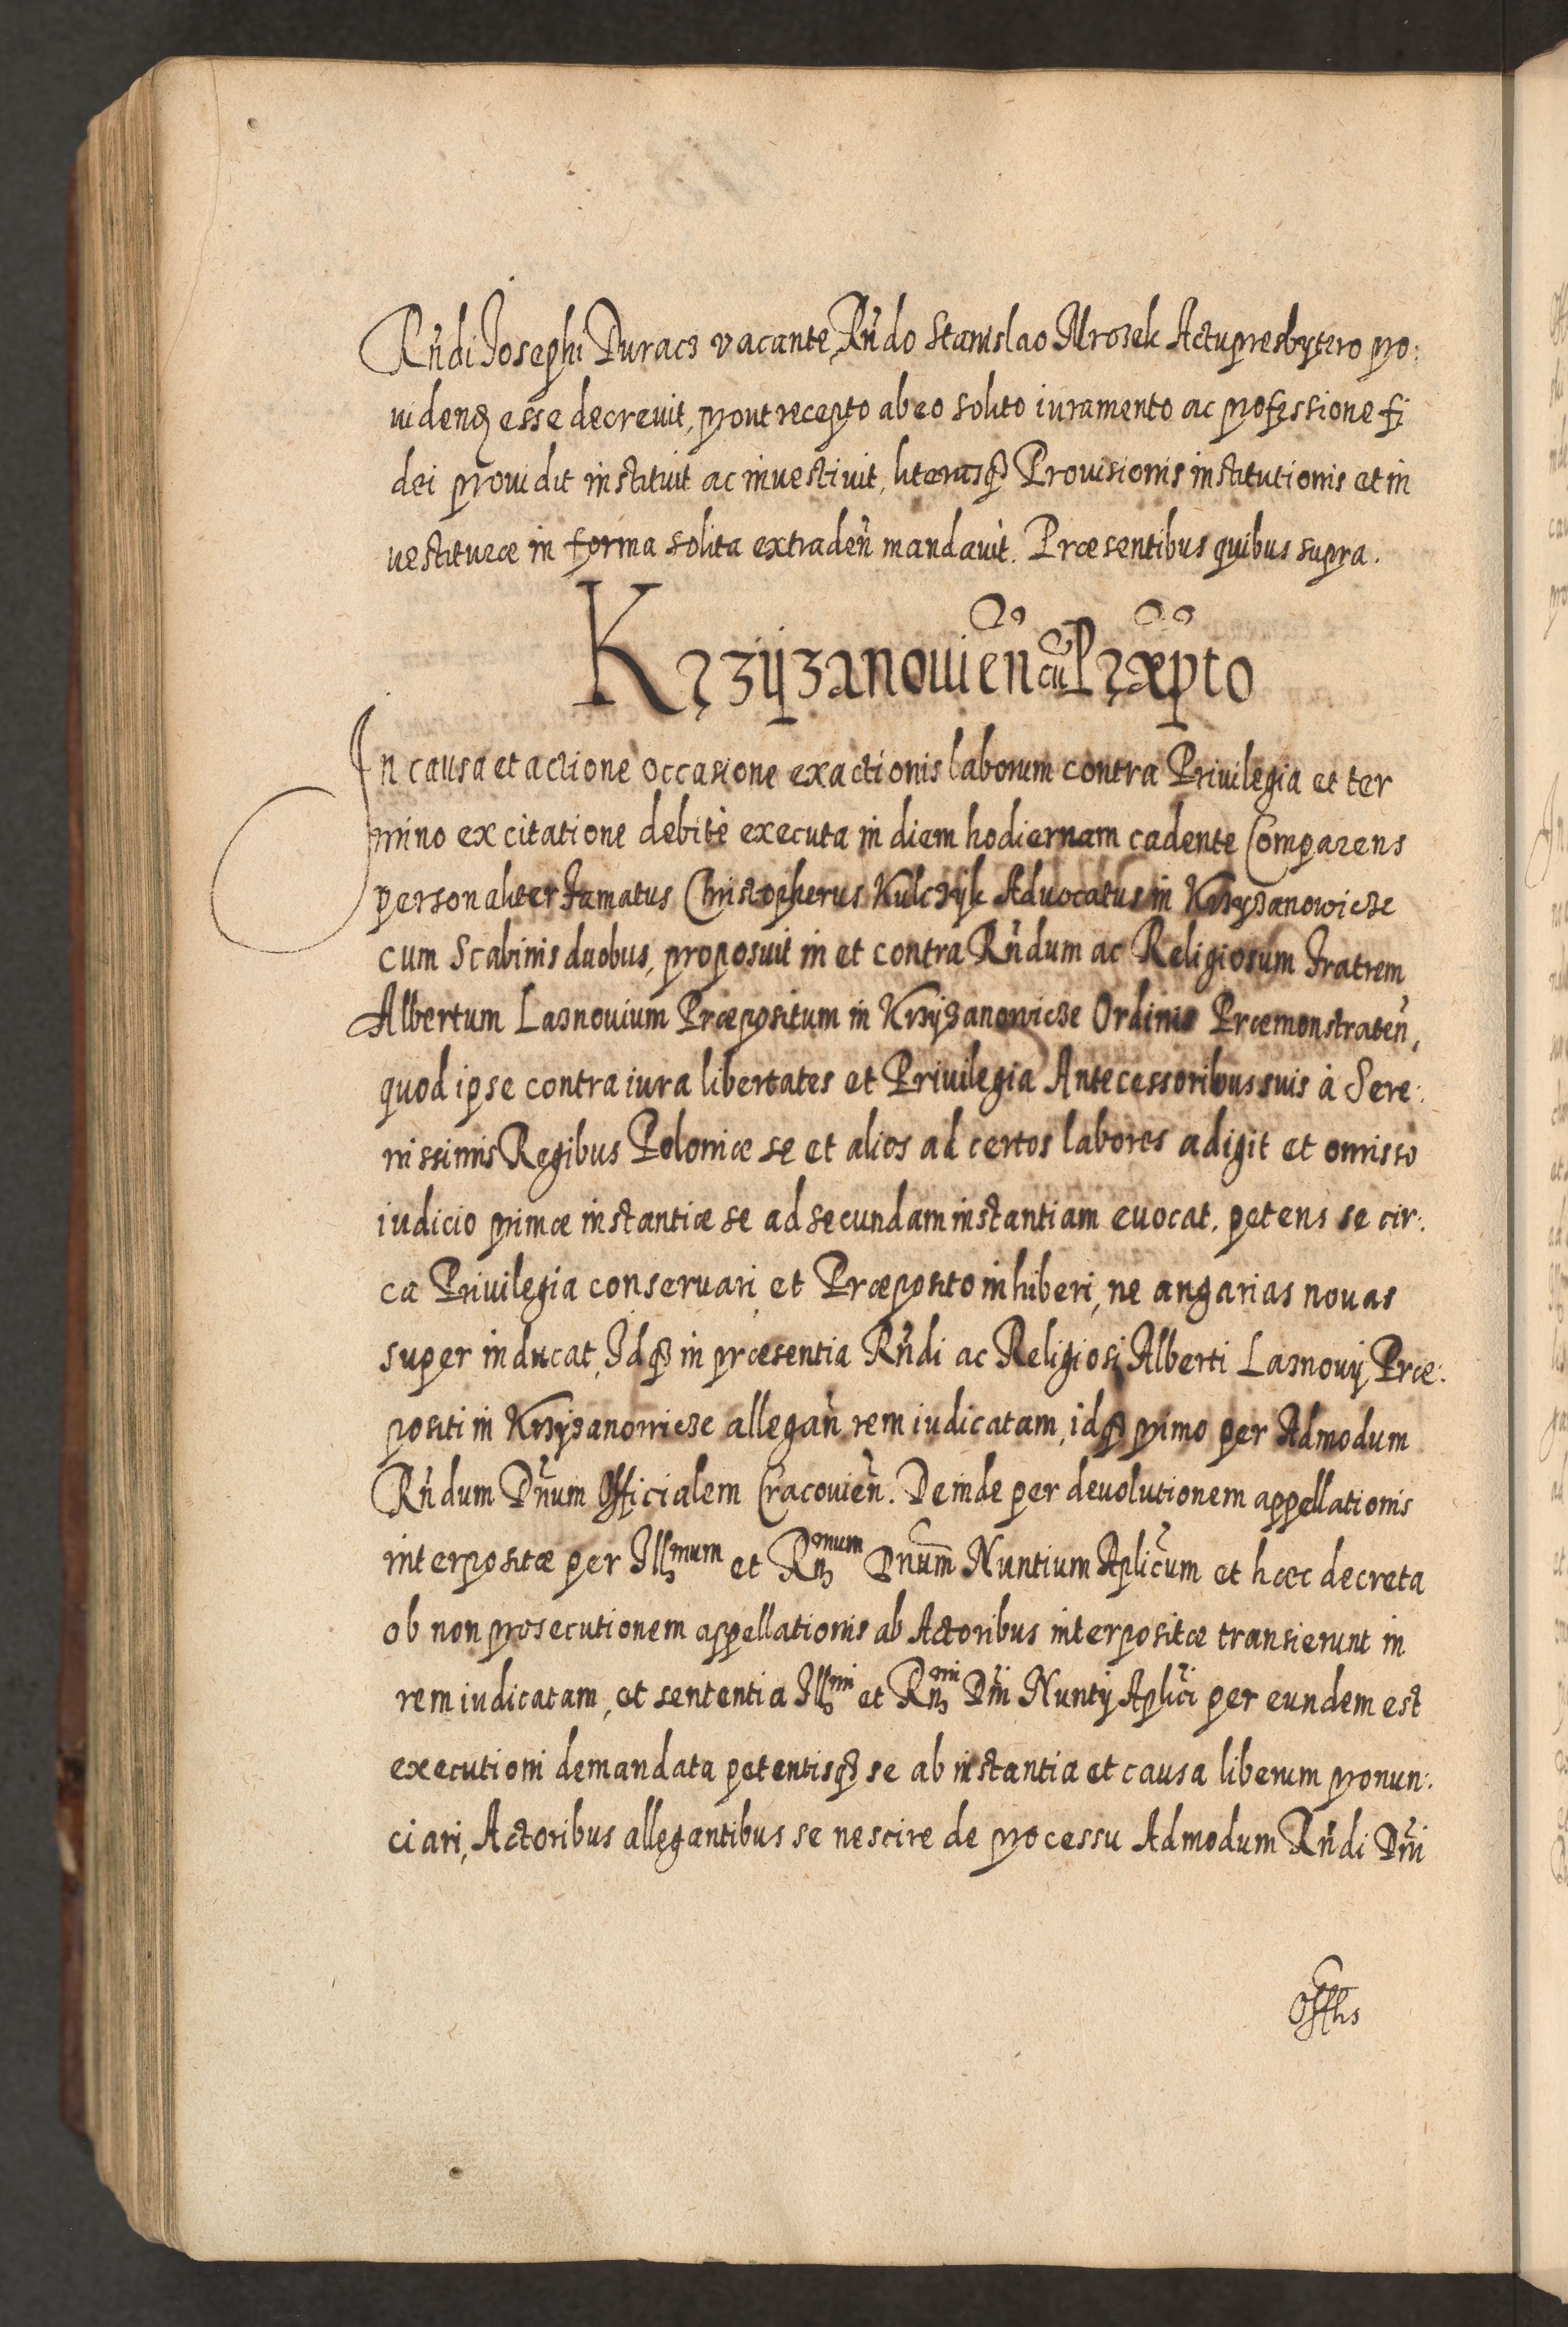 Rńdi Josephi Duracz vacante, Rńdo Stanislao Mrozek Actupresbytero pro:
uidenꝫ esse decreuit, prout recepto ab eo solito iuramento ac professione fi
dei prouidit instituit ac inuestiuit, literasqꝫ Prouisionis institutionis et in
uestituræ in forma solita extradeñ mandauit. Præsentibus quibus supra.
Krzÿzanouień cũ Præpto
In causa et actione occasione exactionis laborum contra Priuilegia et ter
mino ex citatione debitè executa in diem hodiernam cadente Comparens
personaliter Famatus Christopherus Kulczÿk Aduocatus in Krzÿzanowicze
cum Scabinis duobus, proposuit in et contra Rńdum ac Religiosum Fratrem
Albertum Laznouium Præpositum in Krzÿzanowicze Ordinis Præmonstrateń,
quod ipse contra iura libertates et Priuilegia Antecessoribus suis à Sere:
nissimis Regibus Poloniæ se et alios ad certos labores adigit et omisso
iudicio primæ instantiæ se ad secundam instantiam euocat, petens se cir:
ca Priuilegia conseruari, et Præposito inhiberi, ne angarias nouas
super inducat, Idqꝫ in præsentia Rńdi ac Religiosi Alberti Laznouÿ Præ:
positi in Krzÿzanowicze allegań rem iudicatam, idqꝫ primo per Admodum
Rńdum Dńum Officialem Cracouień. Deinde per deuolutionem appellationis
interpositæ per Illꝫmum et Rnꝫmum Dnum̃ Nuntium Aplicum̃ et hæc decreta
ob non prosecutionem appellationis ab Actoribus interpositæ transierunt in
rem iudicatam, et sententia Illꝫmi et Rnꝫmi Dńi Nuntÿ Aplici per eundem est
executioni demandata petentisqꝫ se ab instantia et causa liberum pronun:
ciari, Actoribus allegantibus se nescire de processu Admodum Rńdi Dńi
Offlis